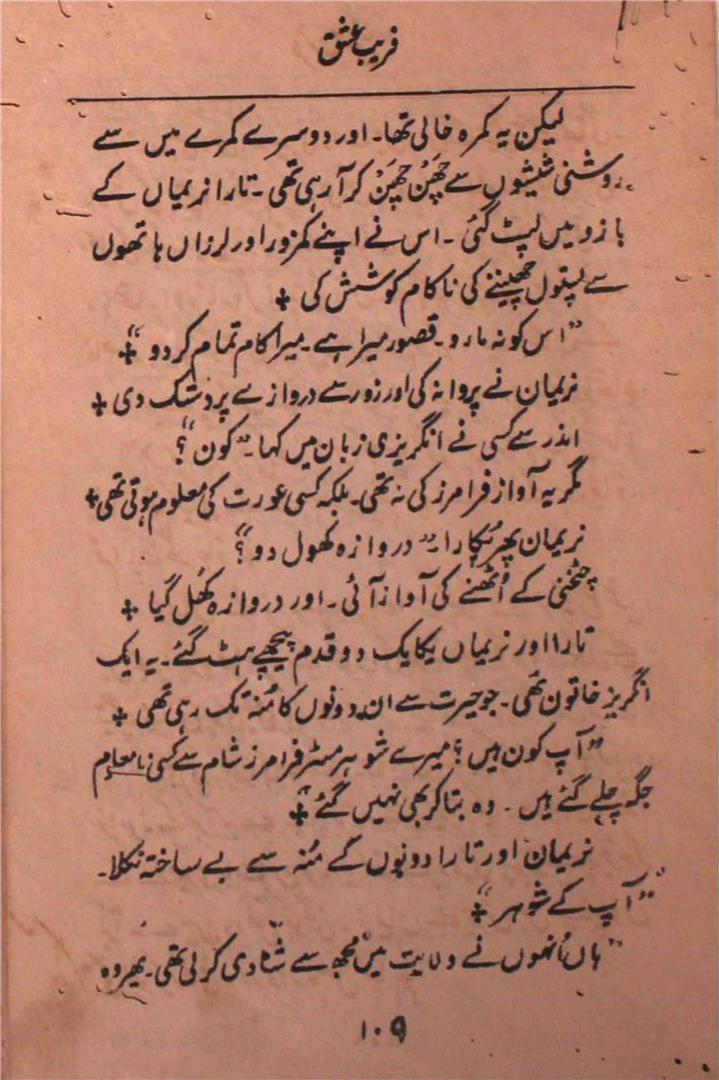 فریب عشق
لیکن یہ کمرہ خالی تھا۔ اور دوسرے کمرے میں سے
روشنی شیشوں سے چھَن چھَن کر آ رہی تھی۔ تارا نریماں کے
بازو میں لپٹ گئی۔ اس نے اپنے کمزور اور لرزاں ہاتھوں
سے پستول چھیننے کی ناکام کوشش کی +
"اس کو نہ مارو۔ قصور میرا ہے۔ میرا کام تمام کر دو" +
نریمان نے پروا نہ کی اور زور سے دروازے پر دستک دی +
اندر سے کسی نے انگریزی زبان میں کہا۔ "کون"؟
مگر یہ آواز فرامرز کی نہ تھی۔ بلکہ کسی عورت کی معلوم ہوتی تھی +
نریمان پھر پُکارا۔ "دروازہ کھول دو"؟
چٹخنی کے اُٹھنے کی آواز آئی۔ اور دروازہ کھُل گیا +
تارا اور نریماں یکایک دو قدم پیچھے ہٹ گئے۔ یہ ایک
انگریز خاتون تھی۔ جو حیرت سے ان دونوں کا مُنہ تک رہی تھی +
"آپ کون ہیں؟ میرے شوہر مسٹر فرامرز شام سے کسی نامعلوم
جگہ چلے گئے ہیں۔ وہ بتا کر بھی نہیں گئے" +
نریمان اور تارا دونوں کے مُنہ سے بے ساختہ نکلا۔
"آپ کے شوہر" +
"ہاں اُنھوں نے ولایت میں مجھ سے شادی کر لی تھی۔ پھر وہ
۱۰۹